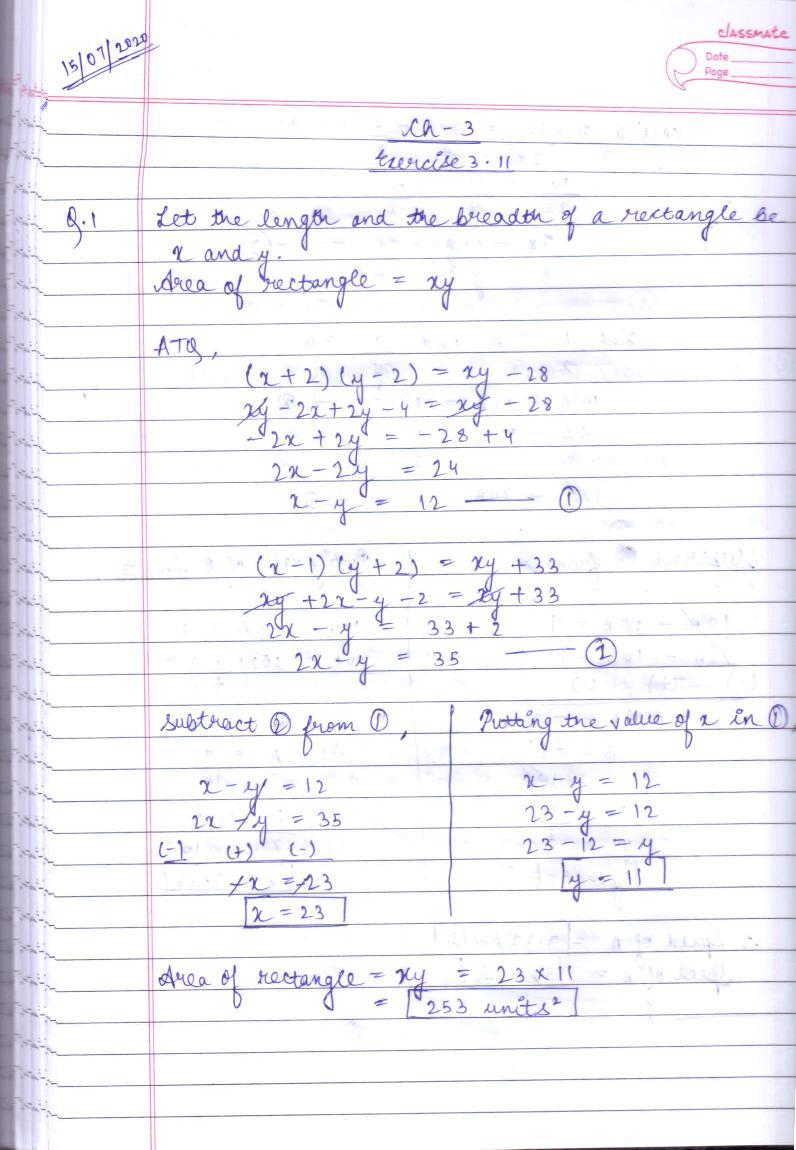 15/07/2020
classmate
Date
Page
Ch - 3
Exercise 3.11
Q.1 Let the length and the breadth of a rectangle be
x and y.
Area of rectangle = xy
ATQ,
(x+2)(y-2) = xy - 28
xy - 2x + 2y - 4 = xy - 28
-2x + 2y = -28 + 4
2x - 2y = 24
x - y = 12 — ①
(x-1)(y+2) = xy + 33
xy + 2x - y - 2 = xy + 33
2x - y = 33 + 2
2x - y = 35 — ②
Subtract ② from ①,
x - y = 12
2x - y = 35
(-) (+) (-)
-x = -23
x = 23
Putting the value of x in ①,
x - y = 12
23 - y = 12
23 - 12 = y
y = 11
Area of rectangle = xy = 23 x 11
= 253 units²